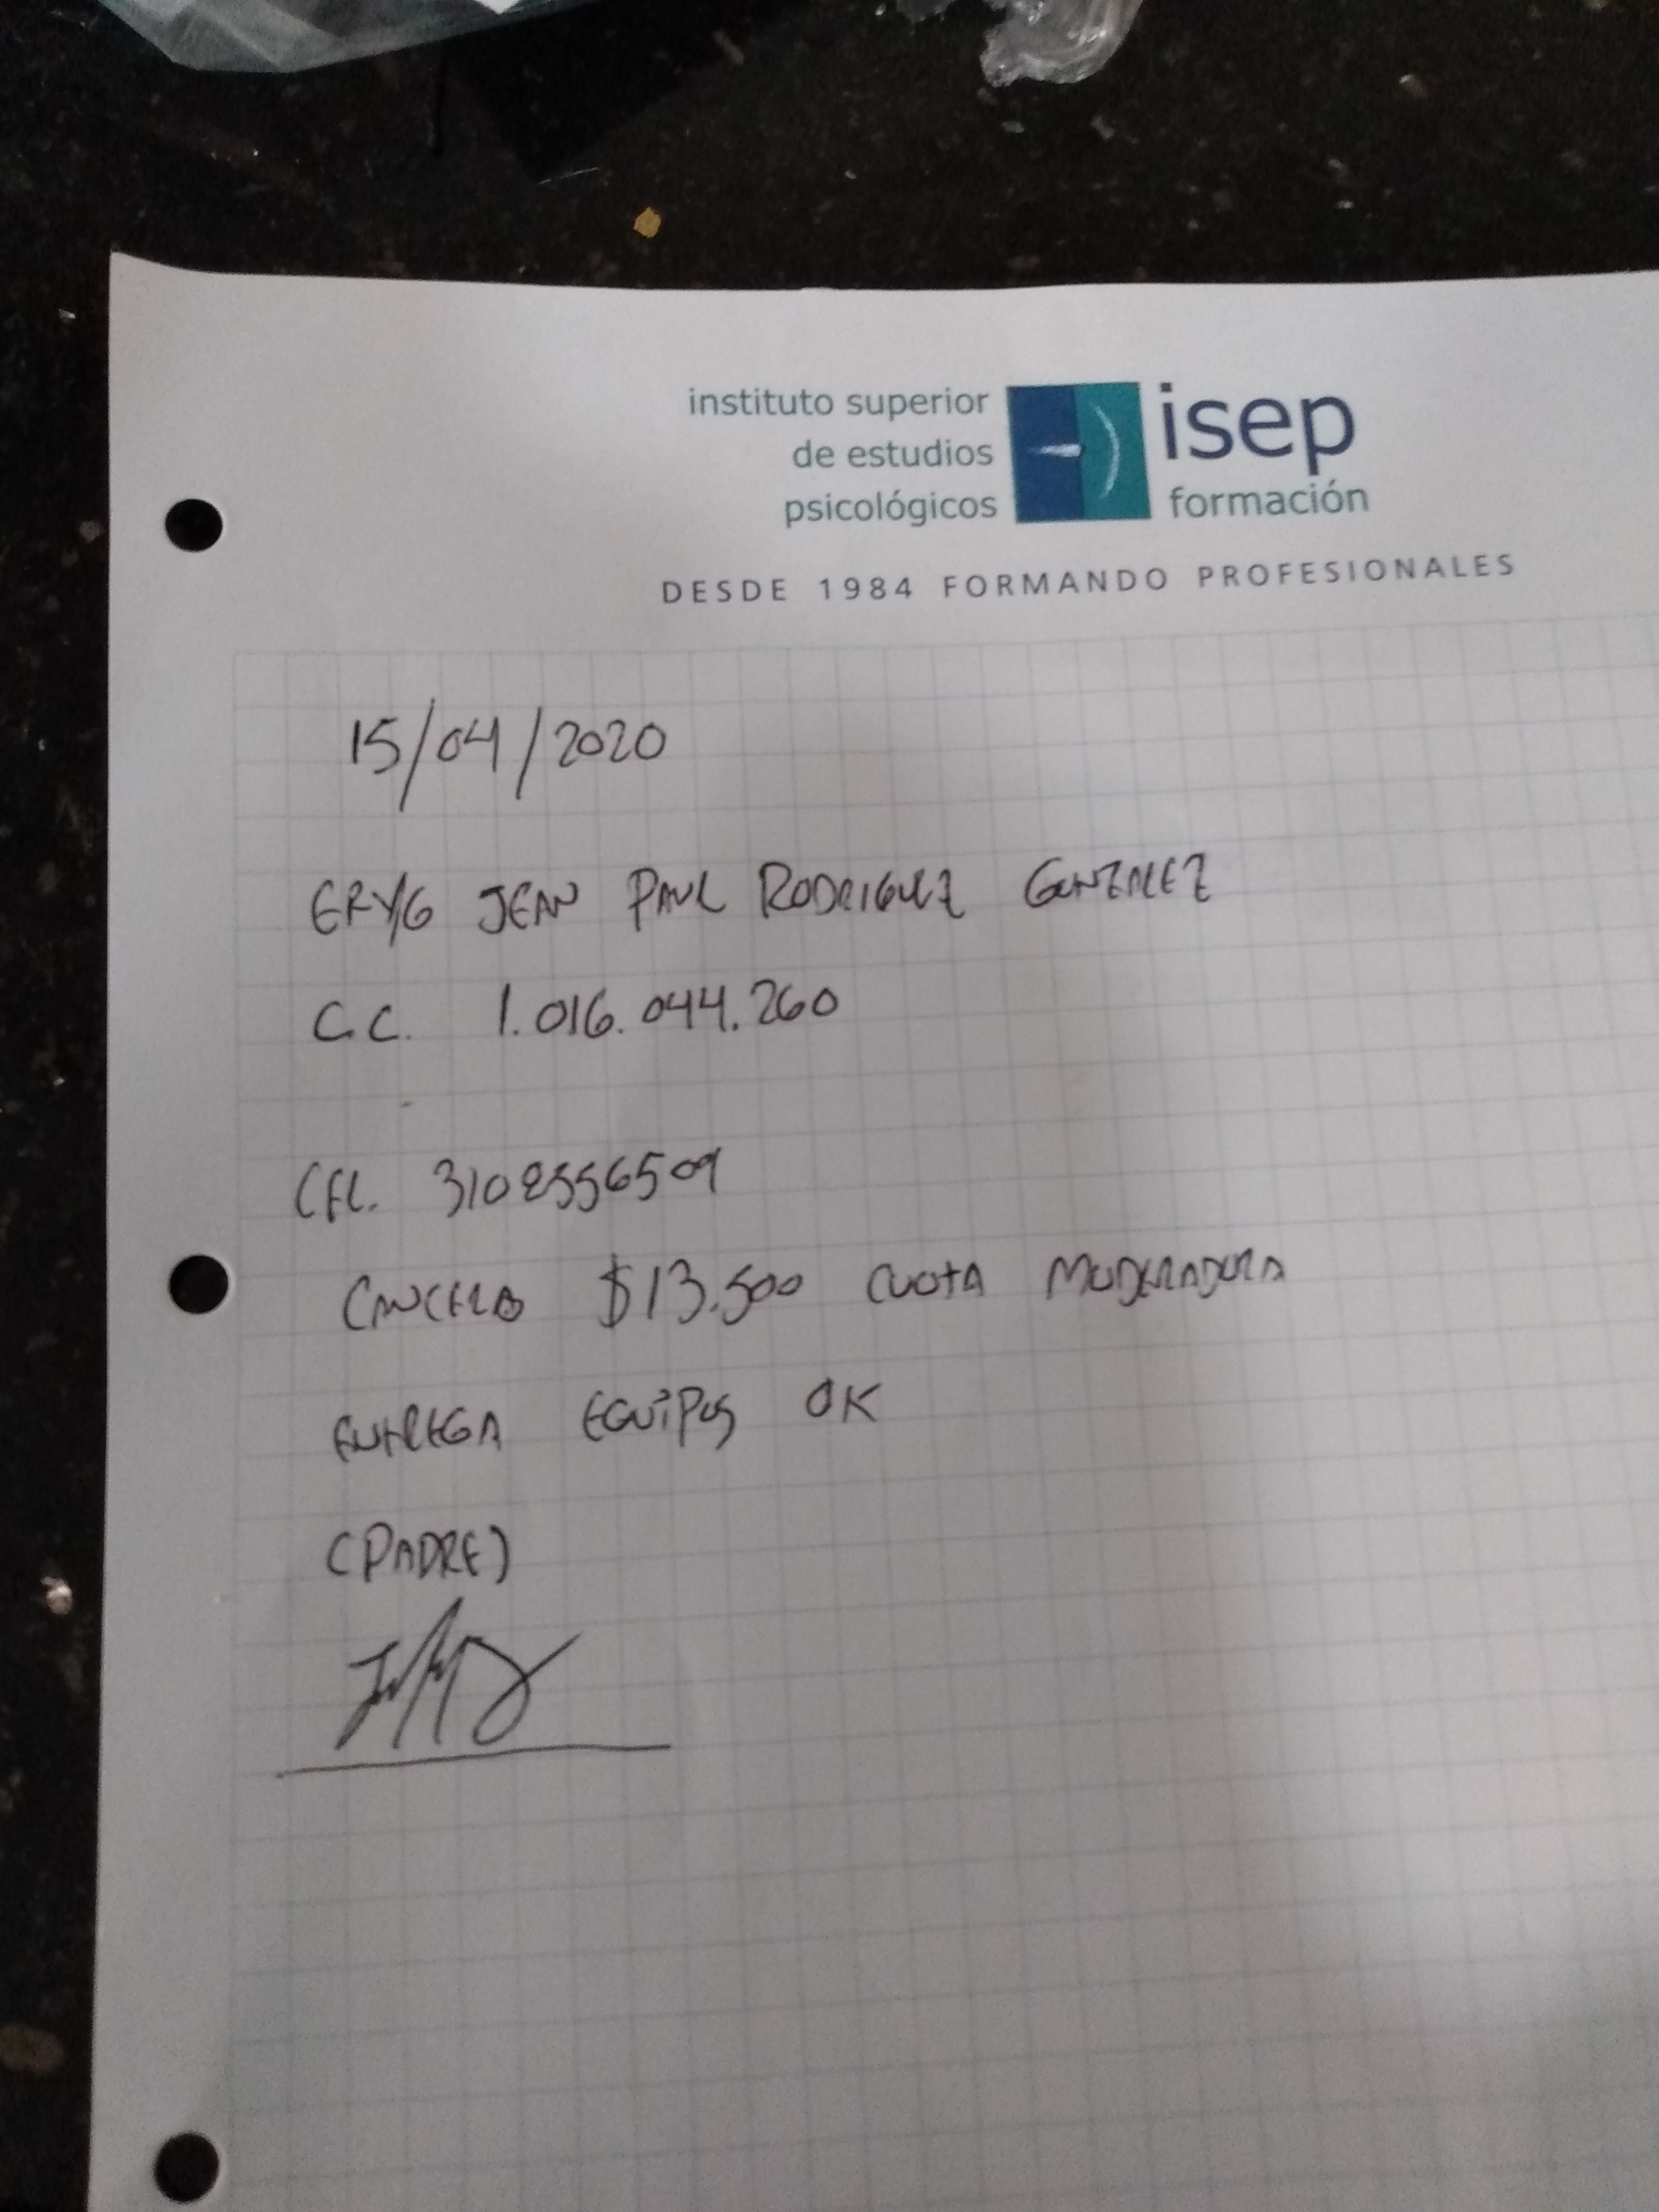 instituto superior
de estudios
psicológicos
isep
formación
DESDE 1984 FORMANDO PROFESIONALES
15/04/2020
JEAN PAUL RODRIGUEZ GONZALEZ
C.C. 1.016.044.260
CEL. 3102556509
CANCELO $13.500 CUOTA MODERADORA
ENTREGA EQUIPOS OK
(PADRE)